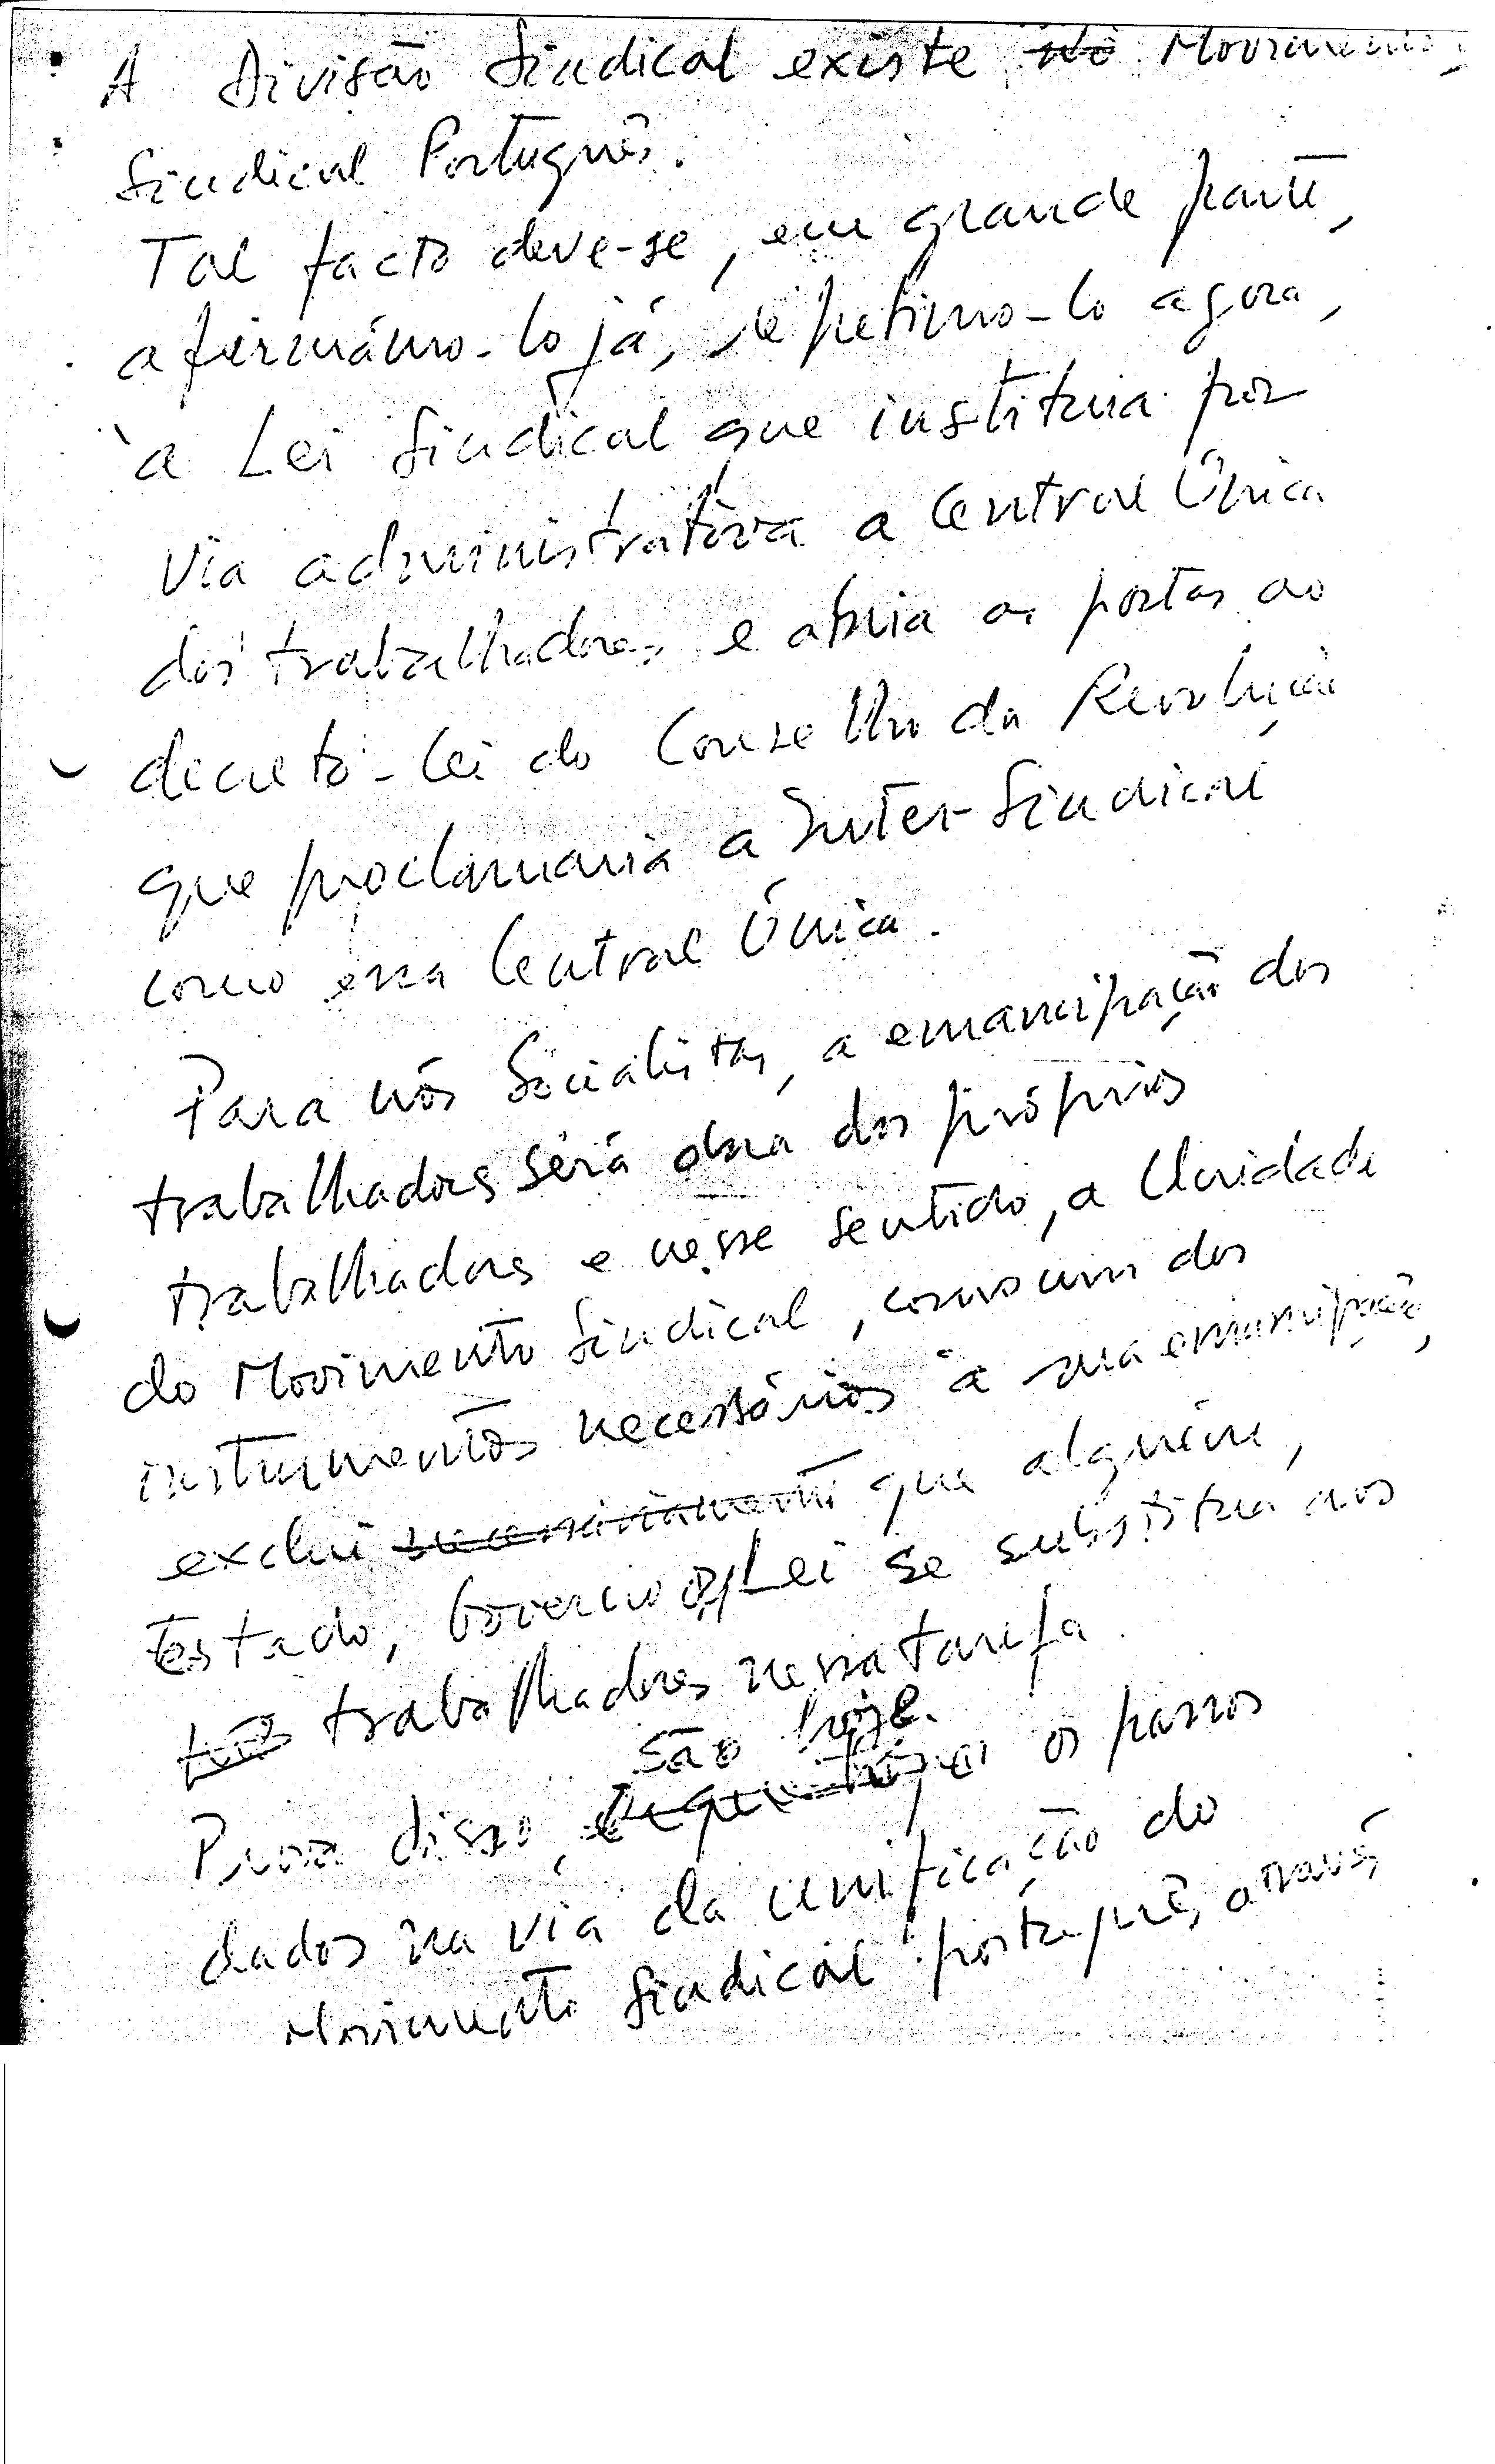 A Divisão Sindical existe no Movimento
Sindical Português.
Tal facto deve-se, em grande parte,
afirmámo-lo já, repetimo-lo agora,
à Lei Sindical que instituia por
via administrativa a Central Única
dos trabalhadores e abria as portas ao
decreto-lei do Conselho da Revolução
que proclamaria a Inter-Sindical
como essa Central Única.
Para nós Socialistas, a emancipação dos
trabalhadores será obra dos próprios
trabalhadores e nesse sentido, a Unidade
do Movimento Sindical, como um dos
instrumentos necessários à sua emancipação,
exclui necessariamente que alguém,
Estado, Governo ou Lei se substitua aos
trabalhadores nessa tarefa.
são hoje
Prova disso, os passos
dados na via da unificação do
Movimento Sindical português, através